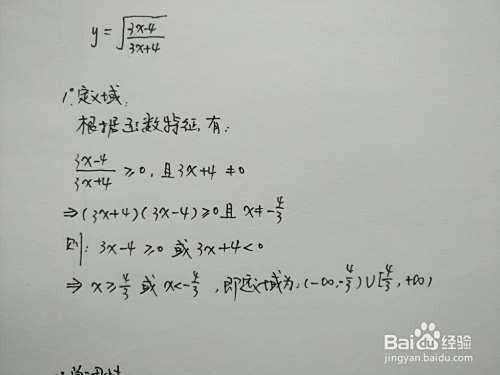 y = √((3x-4)/(3x+4))
1°.定义域:
根据函数特征,有:
(3x-4)/(3x+4) ≥0,且3x+4≠0
⇒(3x+4)(3x-4)≥0且 x≠-4/3
则: 3x-4≥0 或 3x+4<0
⇒ x≥4/3 或 x<-4/3 ,即定义域为:(-∞,-4/3)∪[4/3,+∞)
Bai经验
jingyan.baidu.com